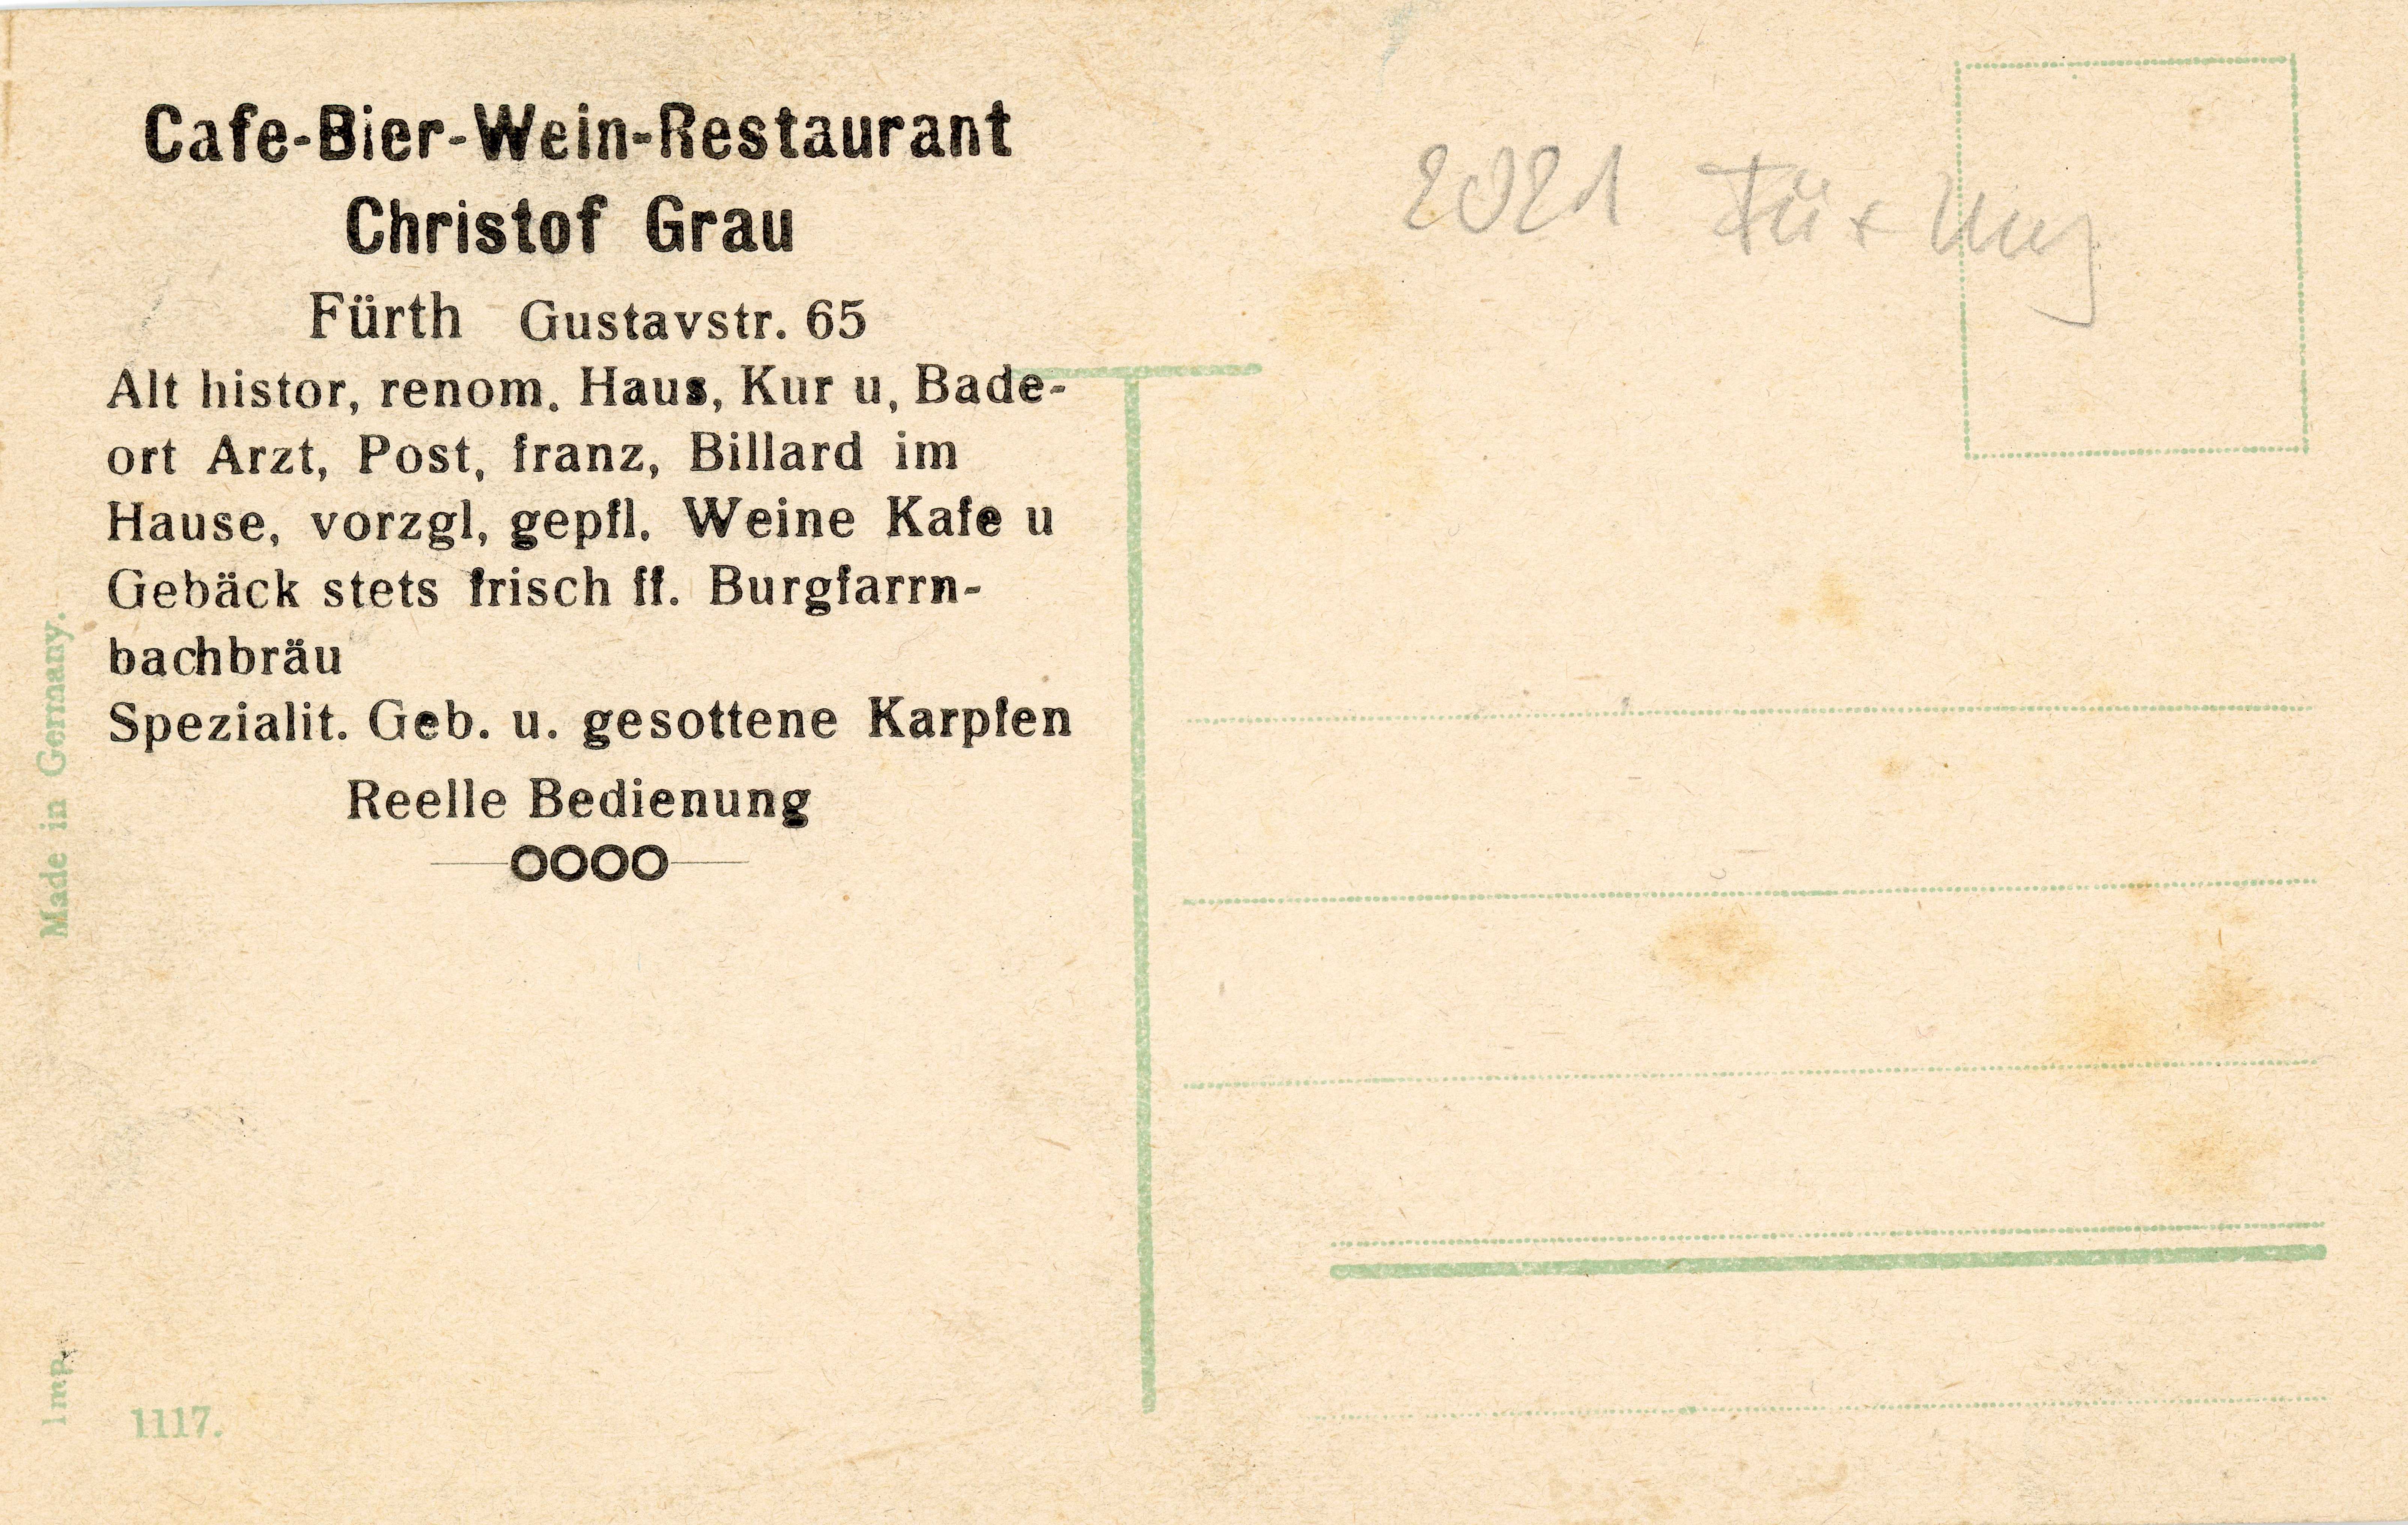 Cafe-Bier-Wein-Restaurant
Christof Grau
Fürth Gustavstr. 65
Alt histor, renom. Haus, Kur u, Bade-
ort Arzt, Post, franz, Billard im
Hause, vorzgl, gepfl. Weine Kafe u
Gebäck stets frisch ff. Burgfarrn-
bachbräu
Spezialit. Geb. u. gesottene Karpfen
Reelle Bedienung
OOOO
Made in Germany.
Imp.
1117.
2021 Fü +